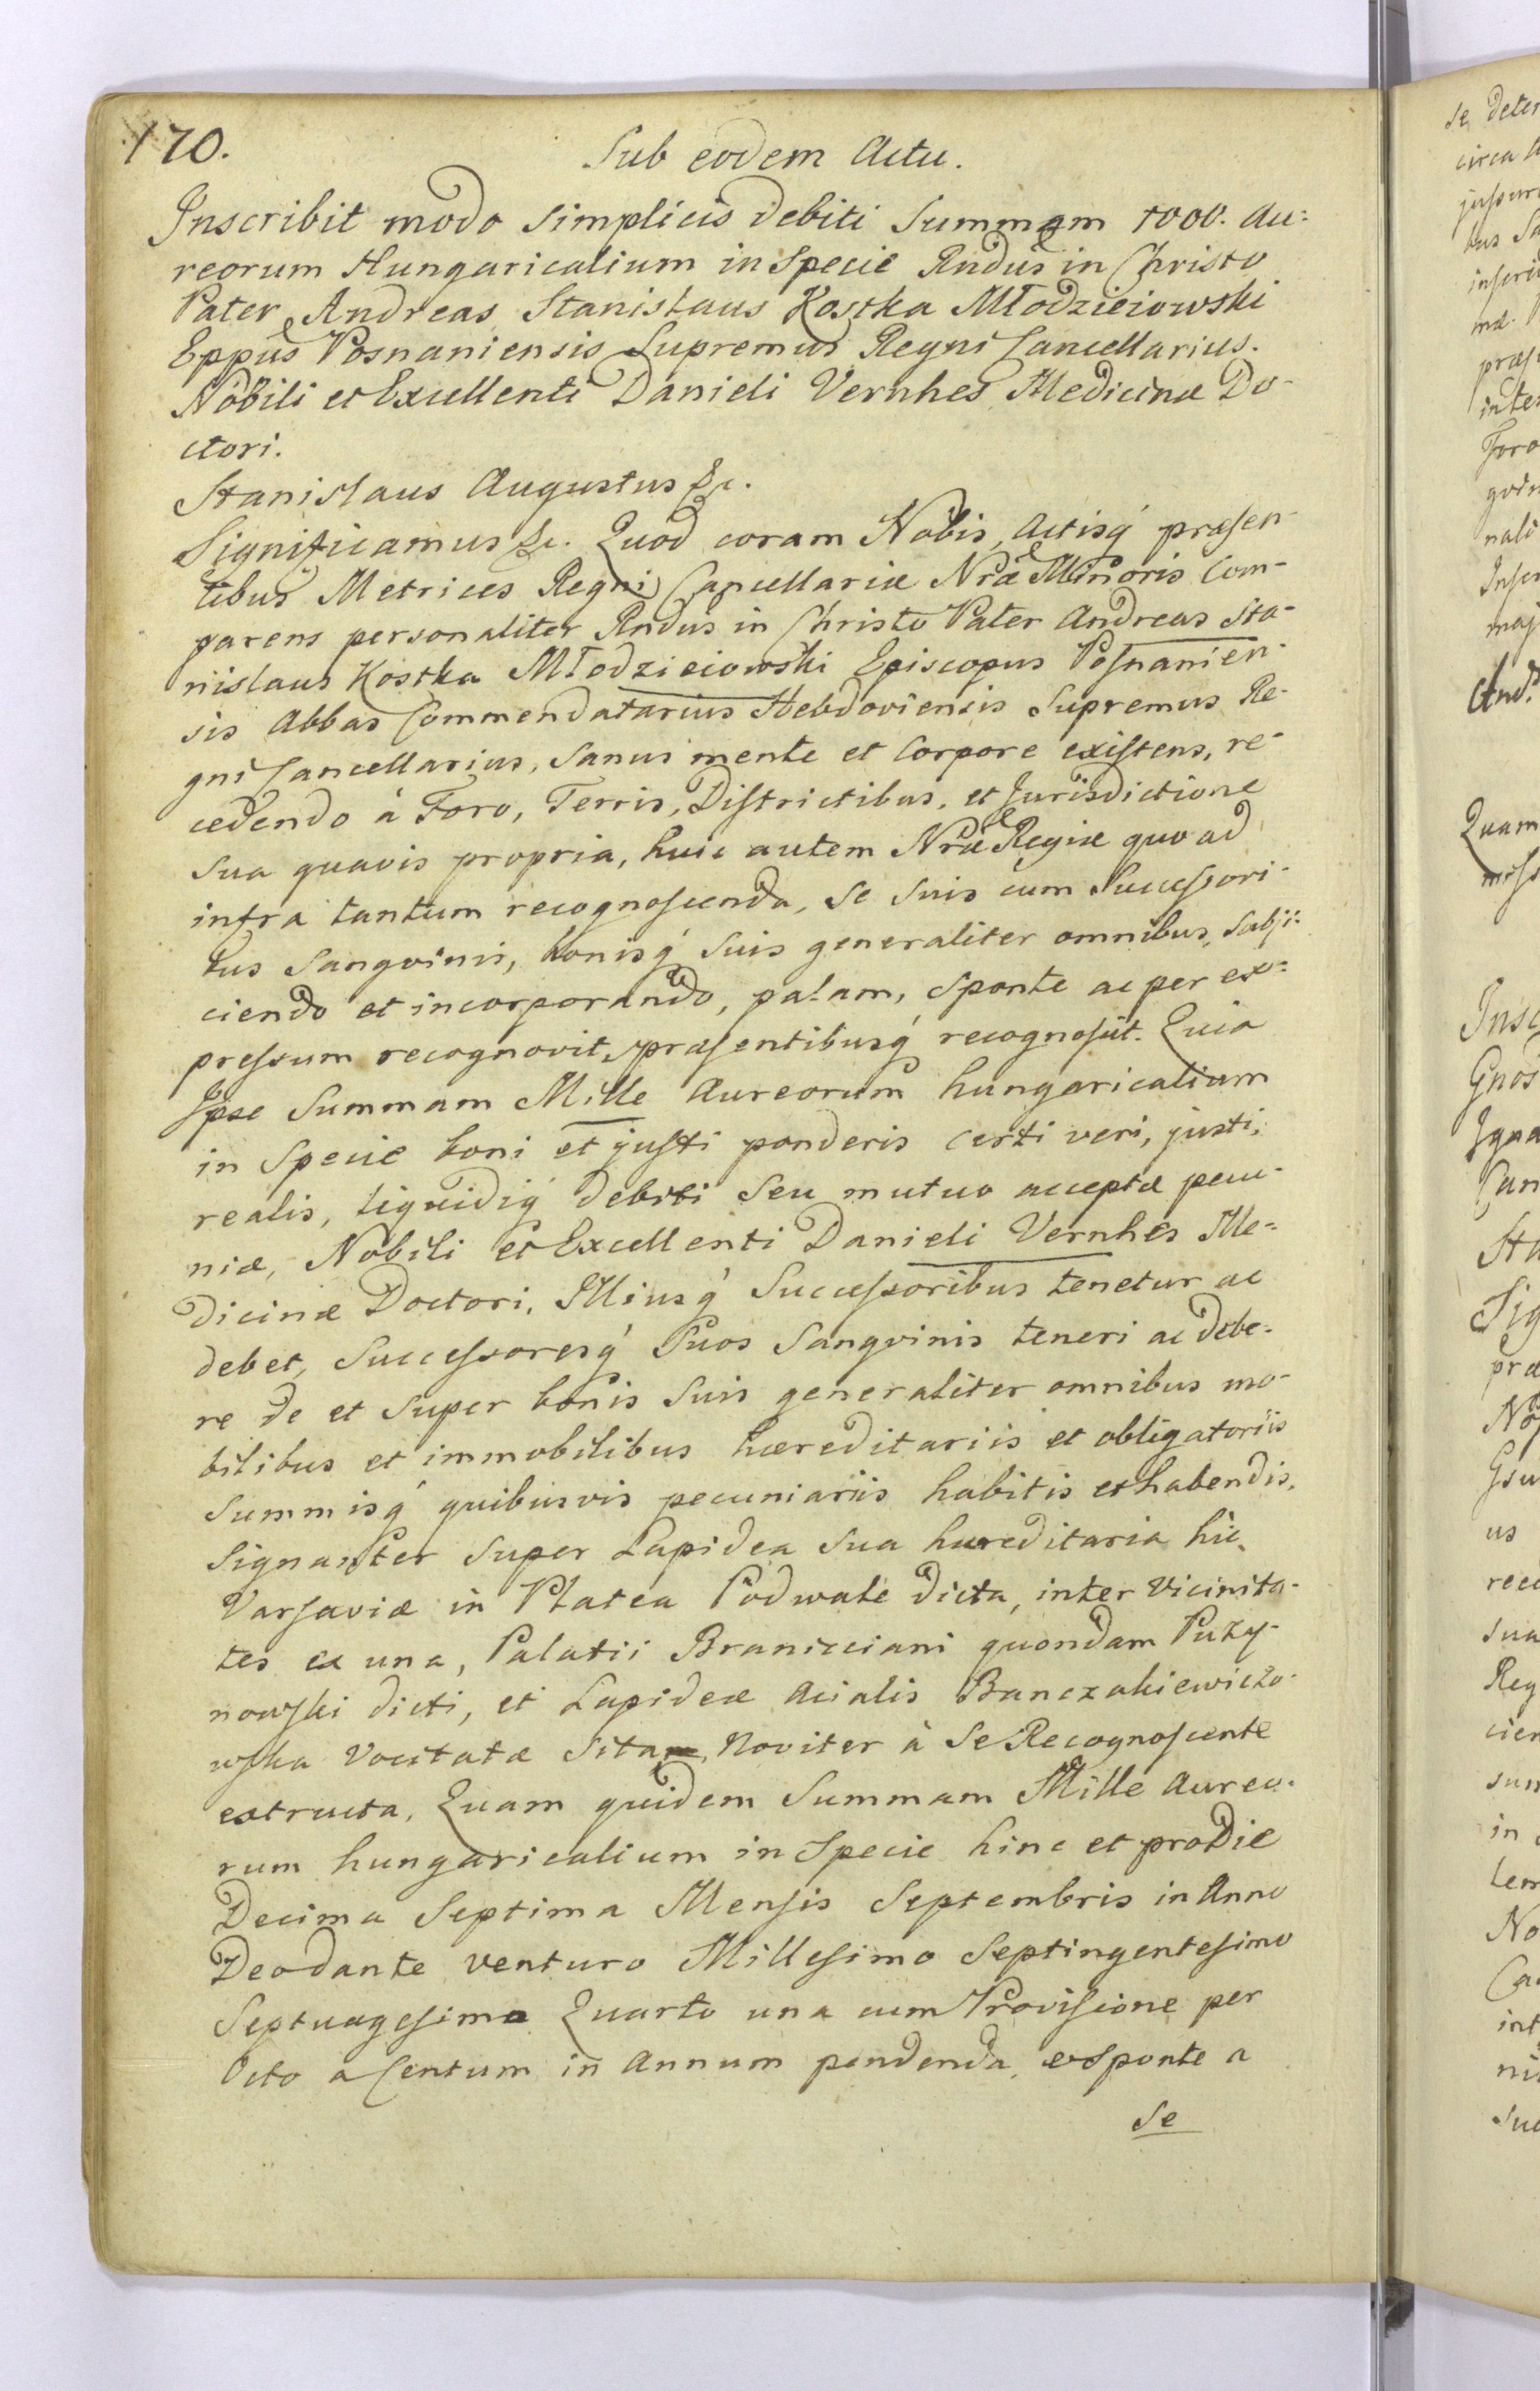 170.
Sub eodem Actu.
Inscribit modo simplicis debiti Summam 1000. Au:
reorum Hungaricalium in Specie Rndus in Christo
Pater Andreas Stanislaus Kostka Młodzieiowski
Eppus Posnaniensis Supremus Regni Cancellarius.
Nobili et Excellenti Danieli Vernhes Medicinæ Do-
ctori.
Stanislaus Augustus &c.
Significamus &c. Quod coram Nobis, Actisq́ præsen-
tibus Metrices Regni Cancellariæ Nræ Minoris Com-
parens personaliter Rndus in Christo Pater Andreas Sta-
nislaus Kostka Młodzieiowski Episcopus Posnanien-
sis Abbas Commendatarius Hebdoviensis Supremus Re-
gni Cancellarius, Sanus mente et Corpore existens, re-
cedendo à Foro, Terris, Districtibus, et Jurisdictione
sua quavis propria, huic autem Nræ Regiæ quo ad
infra tantum recognoscenda, se suis cum Successori-
bus Sangvinis, bonisq́ suis generaliter omnibus, subji-
ciendo et incorporando, palam, Sponte ac per ex-
pressum recognovit, præsentibusq́ recognoscit. Quia
Ipse Summam Mille Aureorum hungaricalium
in Specie boni et justi ponderis certi veri, justi,
realis, liquidiq́ debiti seu mutuo acceptæ pecu-
niæ, Nobili et Excellenti Danieli Vernhes Me-
dicinæ Doctori, Illiusq́ Successoribus tenetur ac
debet, Successoresq́ Suos Sangvinis teneri ac debe-
re de et super bonis suis generaliter omnibus mo-
bilibus et immobilibus hæreditariis et obligatoriis
Summisq́ quibusvis pecuniariis habitis et habendis,
Signanter super Lapidea sua hæreditaria hic
Varsaviæ in Platea Podwale dicta, inter Vicinita-
tes ex una, Palatii Branicciani quondam Puzy-
nowski dicti, et Lapideæ Acialis Banczakiewiczo-
wska Vocitatæ Sita, Noviter à Se Recognoscente
extructa, Quam quidem Summam Mille Aureo-
rum hungaricalium in Specie hinc et pro Die
Decima Septima Mensis Septembris in Anno
Deo dante venturo Millesimo Septingentesimo
Septuagesimo Quarto una cum Provisione per
Octo a Centum in Annum pendenda, et Sponte a
se